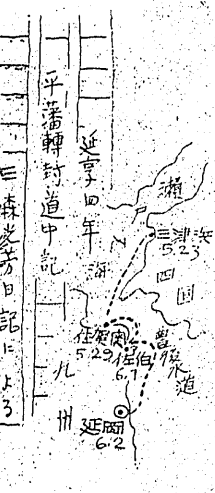 延享四年
平藩轉封道中記
三森光芳日記による
瀬戸内海
三津浜
5.23
四国
豊後水道
佐賀関
5.29
佐伯
6.1
九州
延岡
6.2